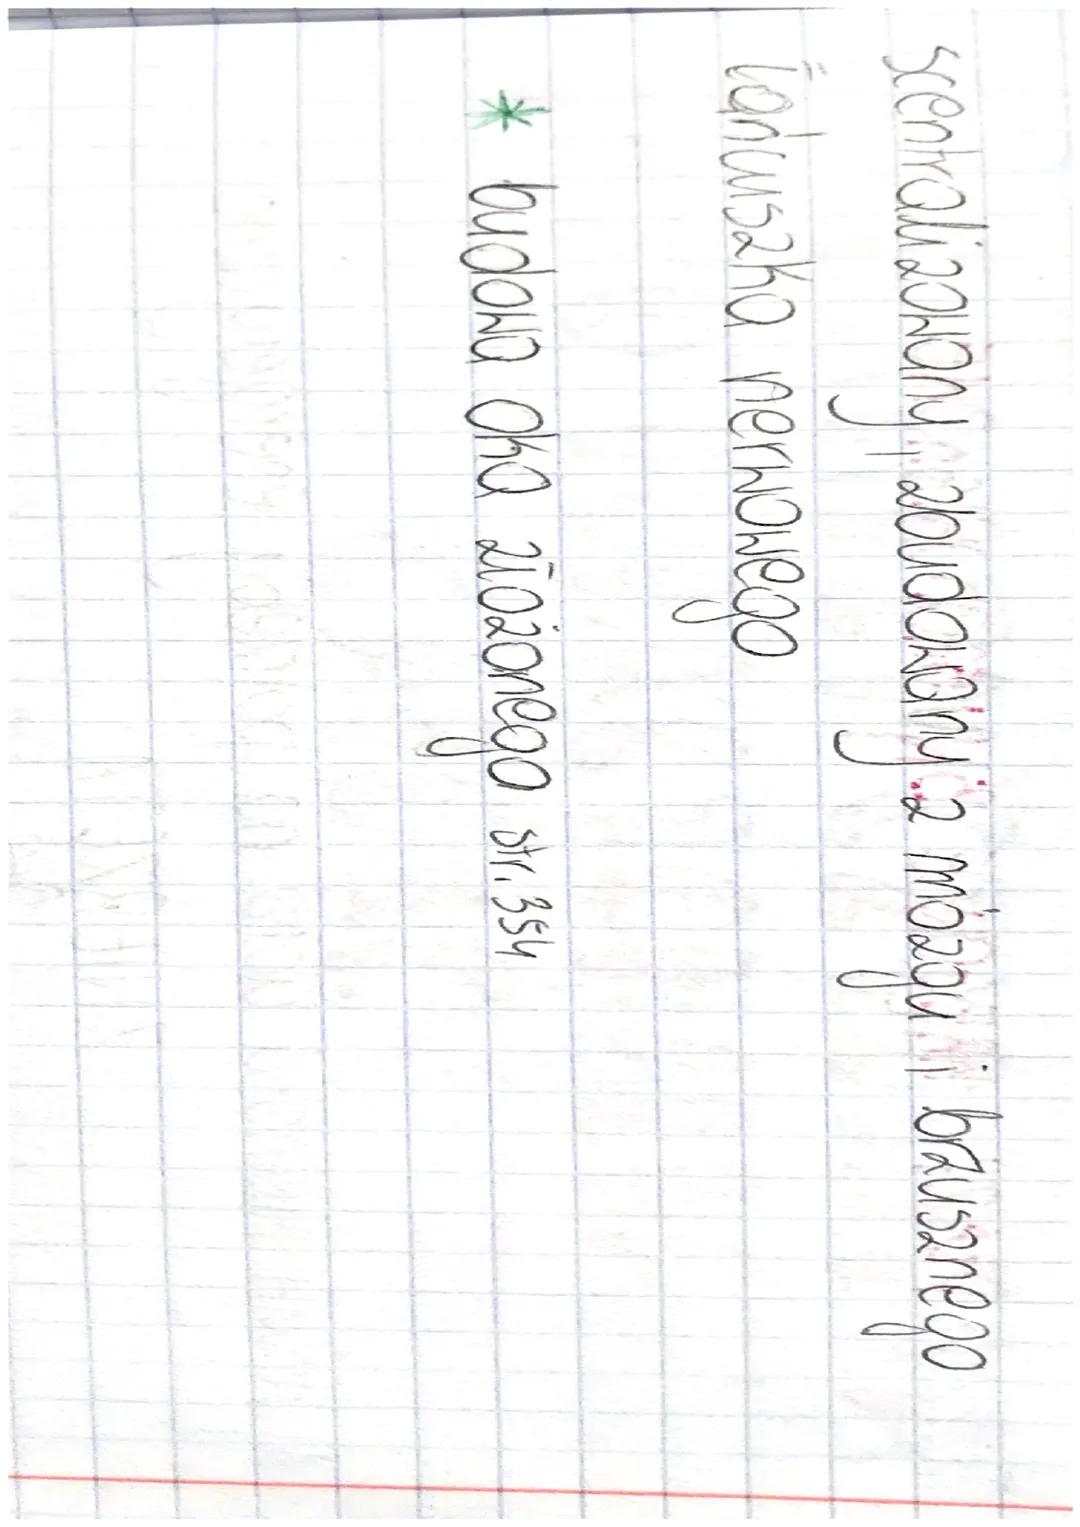 scentralizowany, zbudowany z mózgu i brzusznego
łańcuszka nerwowego
* budowa oka złożonego str. 354